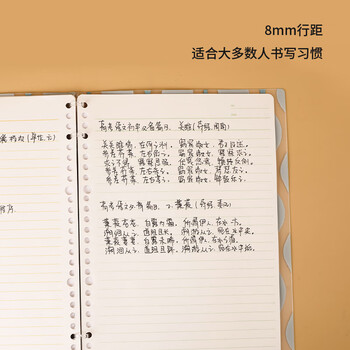 8mm行距
适合大多数人书写习惯
关雎(诗经·周南)
关关雎鸠,在河之洲。窈窕淑女,君子好逑。
参差荇菜,左右流之。窈窕淑女,寤寐求之。
求之不得,寤寐思服。优哉悠哉,辗转反侧。
参差荇菜,左右采之。窈窕淑女,琴瑟友之。
参差荇菜,左右芼之。窈窕淑女,钟鼓乐之。
高考语文必背篇目 2. 蒹葭(诗经·秦风)
蒹葭苍苍,白露为霜。所谓伊人,在水一方。
溯洄从之,道阻且长。溯游从之,宛在水中央。
蒹葭萋萋,白露未晞。所谓伊人,在水之湄。
溯洄从之,道阻且跻。溯游从之,宛在水中坻。